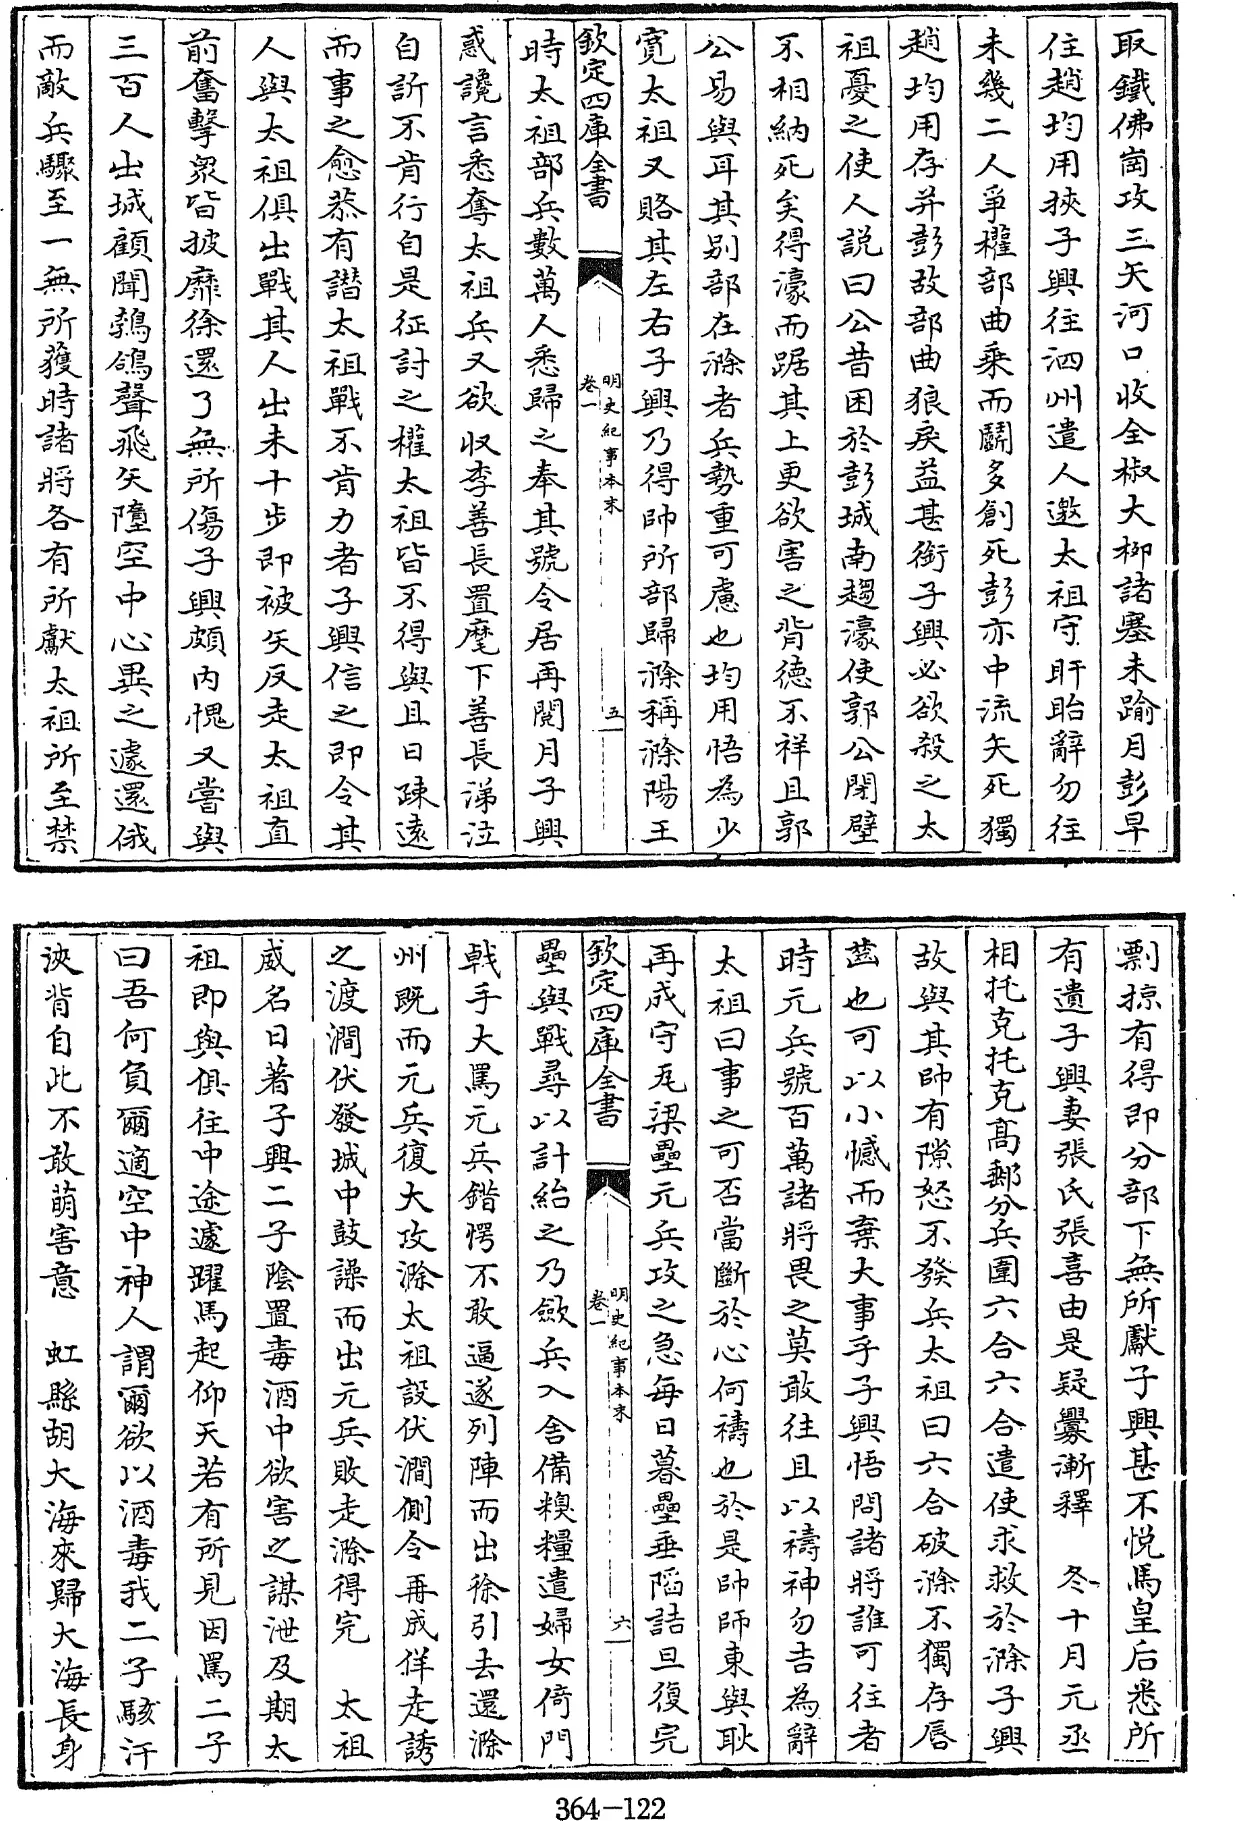 取鐵佛崗攻三汊河口收全椒大柳諸塞未踰月彭早
住趙均用挾子興往泗州遣人邀太祖守盱眙辭勿往
未幾二人爭權部曲乗而鬭多創死彭亦中流矢死獨
趙均用存并彭故部曲狼戾益甚銜子興必欲殺之太
祖憂之使人説曰公昔困於彭城南趨濠使郭公閉壁
不相納死矣得濠而踞其上更欲害之背德不祥且郭
公易與耳其别部在滁者兵勢重可慮也均用悟為少
寛太祖又賂其左右子興乃得帥所部歸滁稱滁陽王
欽定四庫全書
明史紀事本末
卷一
五
時太祖部兵數萬人悉歸之奉其號令居再閱月子興
惑讒言悉奪太祖兵又欲收李善長置麾下善長涕泣
自訢不肯行自是征討之權太祖皆不得與且日疎遠
而事之愈恭有譖太祖戰不肯力者子興信之即令其
人與太祖俱出戰其人出未十步即被矢反走太祖直
前奮擊衆皆披靡徐還了無所傷子興頗内愧又嘗與
三百人出城顧聞鵓鴿聲飛矢墮空中心異之遽還俄
而敵兵驟至一無所獲時諸將各有所獻太祖所至禁
剽掠有得即分部下無所獻子興甚不悦馬皇后悉所
有遺子興妻張氏張喜由是疑釁漸釋　冬十月元丞
相托克托克髙郵分兵圍六合六合遣使求救於滁子興
故與其帥有隙怒不發兵太祖曰六合破滁不獨存唇
齒也可以小憾而棄大事乎子興悟問諸將誰可往者
時元兵號百萬諸將畏之莫敢往且以禱神勿吉為辭
太祖曰事之可否當斷於心何禱也於是帥師東與耿
再成守瓦梁壘元兵攻之急每日暮壘垂陷詰旦復完
欽定四庫全書
明史紀事本末
卷一
六
壘與戰尋以計紿之乃歛兵入舍備糗糧遣婦女倚門
戟手大罵元兵錯愕不敢逼遂列陣而出徐引去還滁
州既而元兵復大攻滁太祖設伏澗側令再成佯走誘
之渡澗伏發城中鼓譟而出元兵敗走滁得完　太祖
威名日著子興二子陰置毒酒中欲害之謀泄及期太
祖即與俱往中途遽躍馬起仰天若有所見因罵二子
曰吾何負爾適空中神人謂爾欲以酒毒我二子駭汗
浹背自此不敢萌害意　虹縣胡大海來歸大海長身
364-122